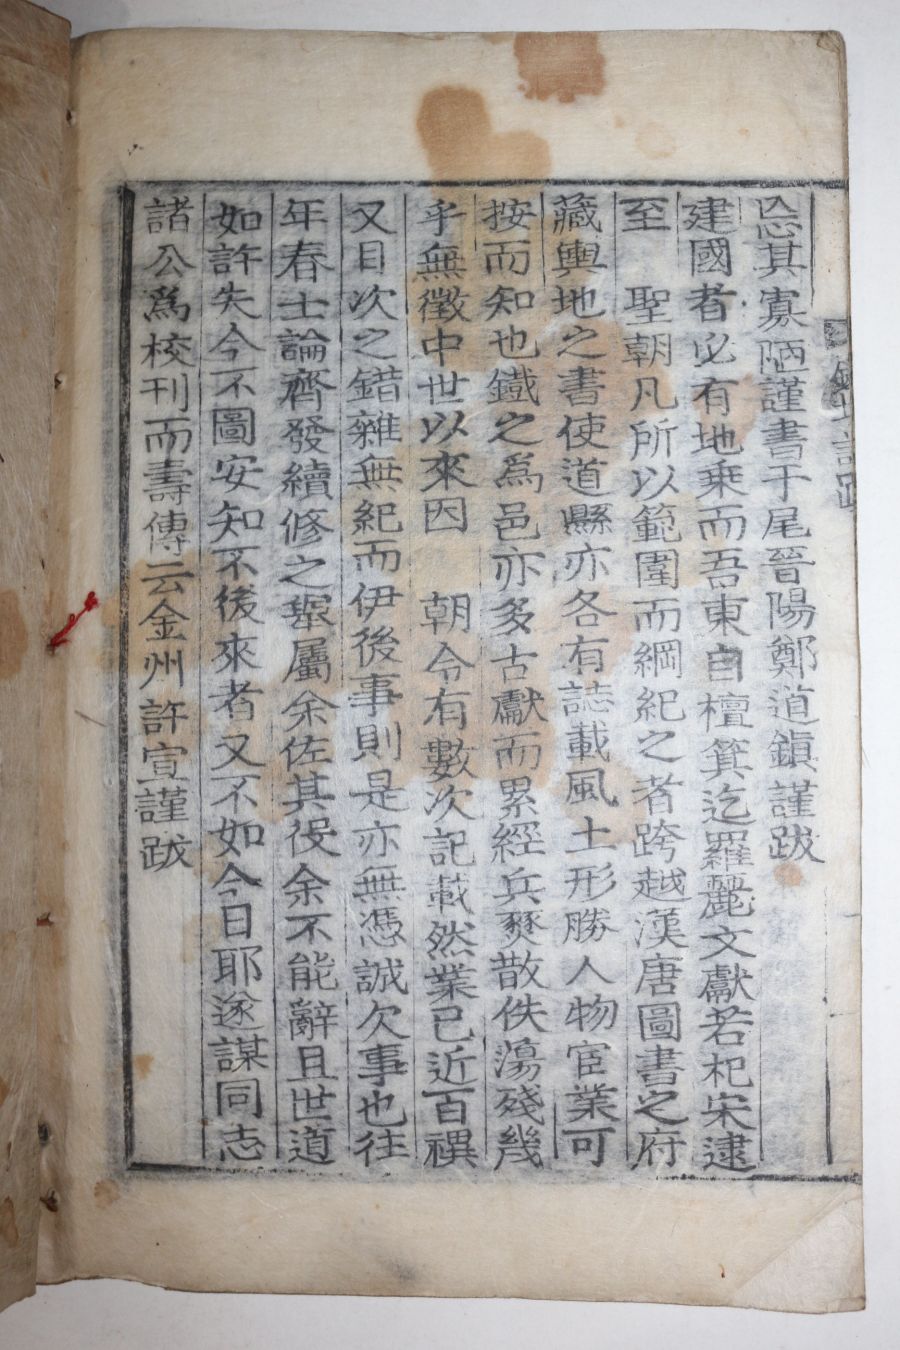 忘其寡陋謹書于尾晉陽鄭道鎭謹跋
建國者必有地乗而吾東自檀箕迄羅麗文獻若杞宋逮
至 聖朝凡所以範圍而綱紀之者跨越漢唐圖書之府
藏輿地之書使道縣亦各有誌載風土形勝人物宦業可
按而知也鐵之爲邑亦多古獻而累經兵燹散佚蕩殘幾
乎無徵中世以來因 朝令有數次記載然業已近百禩
又目次之錯雜無紀而伊後事則是亦無憑誠欠事也往
年春士論齊發續修之擧屬余佐其役余不能辭且世道
如許失今不圖安知不後來者又不如今日耶遂謀同志
諸公爲校刊而壽傳云金州許宣謹跋